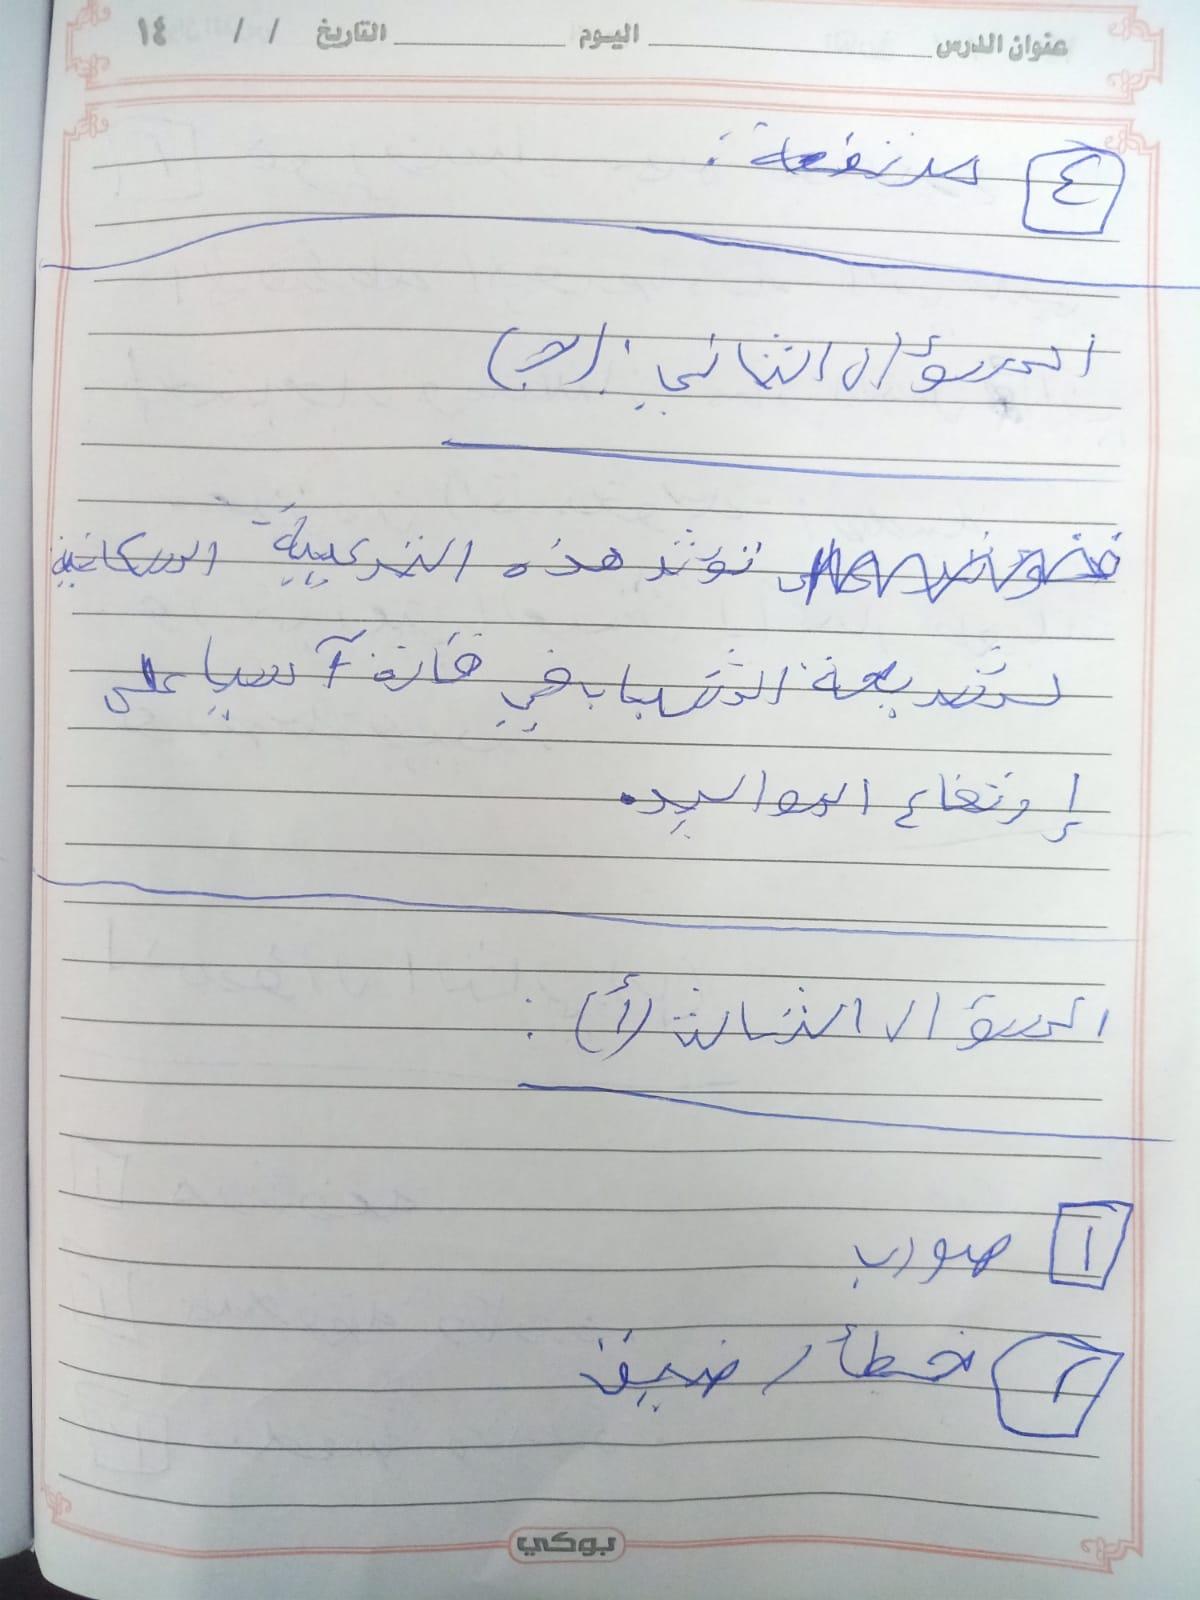 عنوان الدرس اليوم التاريخ / / ١٤
٤ مرتفعة :
السؤال الثاني : (ج)
تؤثر هذه التركيبة السكانية
لشريحة الشباب في قارة آسيا على
إرتفاع المواليد.
السؤال الثالث (أ) :
١ صوب
٢ خطأ / ضيق
بوكي